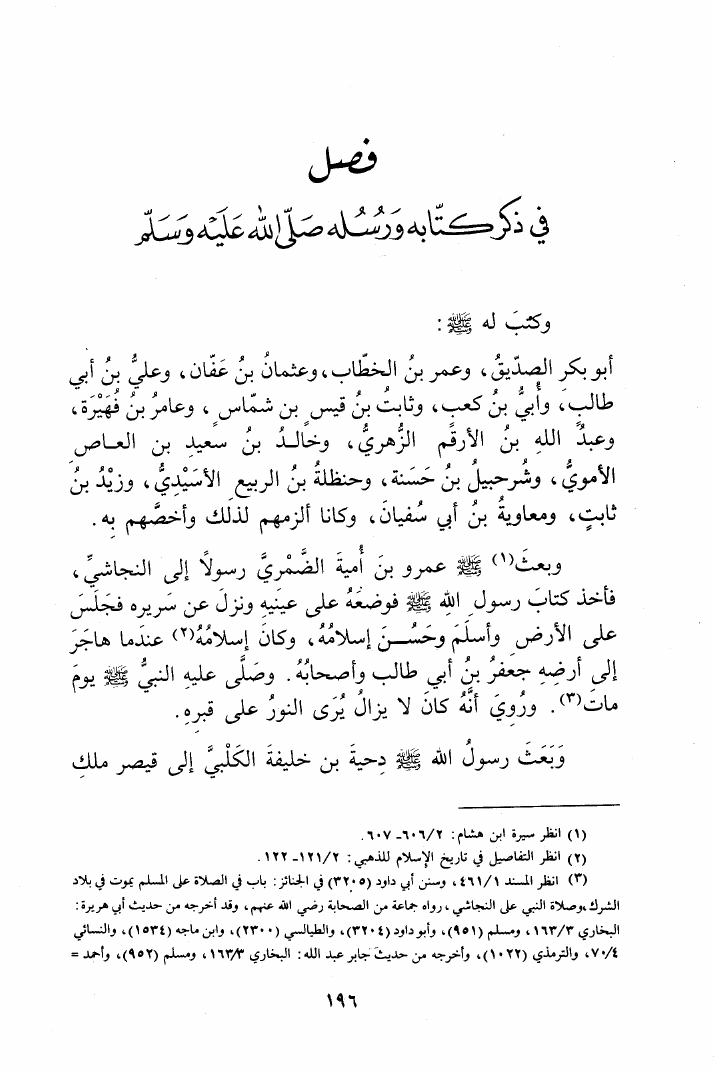 فصل
في ذكر كتّابه وَرُسُله صَلّى الله عَلَيْه وَسَلّم
وكتبَ له ﷺ :
أبو بكرٍ الصدّيقُ، وعمر بنُ الخطّاب، وعثمانُ بنُ عَفّان، وعليُّ بنُ أبي
طالبٍ، وأُبيُّ بنُ كعبٍ، وثابتُ بنُ قيسِ بن شمّاسٍ، وعامرُ بنُ فُهَيْرَة،
وعبدُ اللهِ بنُ الأرقمِ الزُّهريُّ، وخالدُ بنُ سعيدِ بن العاصِ
الأمويُّ، وشُرحبيلُ بنُ حَسَنة، وحنظلةُ بنُ الربيعِ الأسَيْدِيُّ، وزيْدُ بنُ
ثابتٍ، ومعاويةُ بنُ أبي سُفيانَ، وكانا ألزمهم لذلك وأخصَّهم بِه.
وبعثَ(١) ﷺ عمرو بنَ أُميةَ الضَّمْريَّ رسولاً إلى النجاشيِّ،
فأخذ كتابَ رسولِ اللهِ ﷺ فوضعَهُ على عينَيهِ ونزلَ عن سَريره فجَلَسَ
على الأرضِ وأسلَمَ وحَسُنَ إسلامُهُ، وكانَ إسلامُهُ(٢) عندَما هاجَرَ
إلى أرضِهِ جعفرُ بنُ أبي طالب وأصحابُهُ. وصَلَّى عليهِ النبيُّ ﷺ يومَ
ماتَ(٣). ورُوِيَ أنَّهُ كانَ لا يزالُ يُرَى النورُ على قبرِه.
وَبَعَثَ رسولُ الله ﷺ دِحيةَ بن خليفةَ الكَلْبيَّ إلى قيصر ملكِ
(١) انظر سيرة ابن هشام: ٢/٦٠٦ـ ٦٠٧.
(٢) انظر التفاصيل في تاريخ الإسلام للذهبي: ٢/١٢١ـ ١٢٢.
(٣) انظر المسند ٤٦١/١، وسنن أبي داود (٣٢٠٥) في الجنائز: باب في الصلاة على المسلم يموت في بلاد
الشرك، وصلاة النبي على النجاشي، رواه جماعة من الصحابة رضي الله عنهم، وقد أخرجه من حديث أبي هريرة:
البخاري ١٦٣/٣، ومسلم (٩٥١)، وأبو داود (٣٢٠٤)، والطيالسي (٢٣٠٠)، وابن ماجه (١٥٣٤)، والنسائي
٧٠/٤، والترمذي (١٠٢٢)، وأخرجه من حديث جابر عبد الله: البخاري ١٦٣/٣، ومسلم (٩٥٢)، وأحمد =
١٩٦